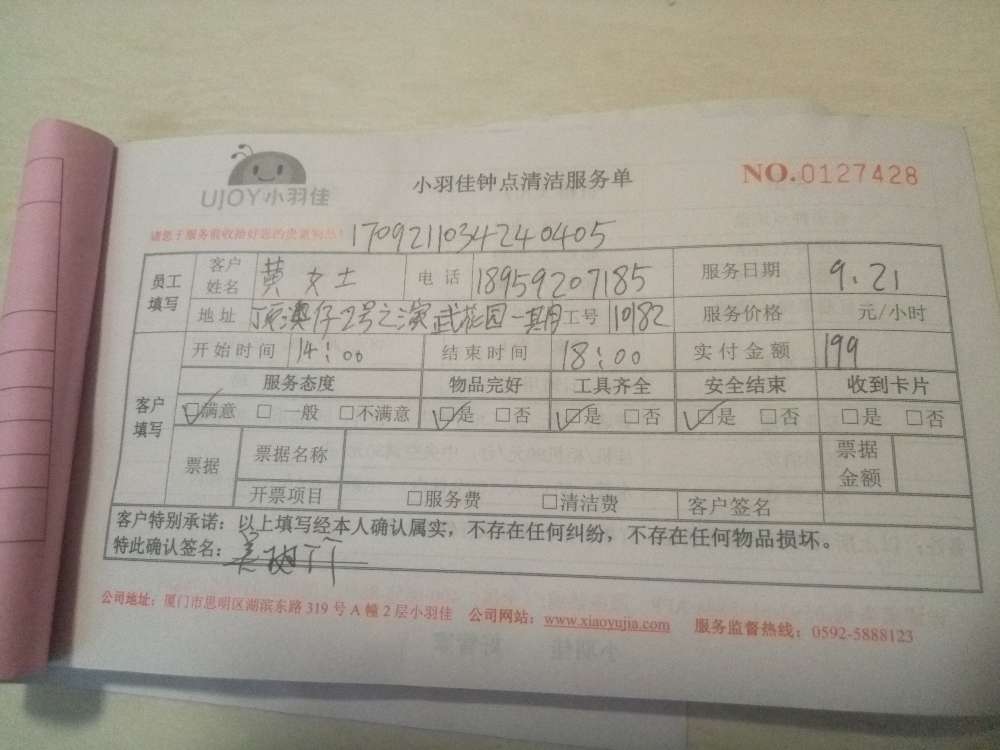 UJOY小羽佳
小羽佳钟点清洁服务单
NO.0127428
请您于服务前收拾好您的贵重物品！
1709211034240405
员工填写 客户姓名 黄女士 电话 18959207185 服务日期 9.21
地址 顶澳仔2号之演武花园一期 工号 10182 服务价格 元/小时
开始时间 14:00 结束时间 18:00 实付金额 199
客户填写 服务态度 物品完好 工具齐全 安全结束 收到卡片
☑满意 □一般 □不满意 ☑是 □否 ☑是 □否 ☑是 □否 □是 □否
票据 票据名称 票据金额
开票项目 □服务费 □清洁费 客户签名
客户特别承诺：以上填写经本人确认属实，不存在任何纠纷，不存在任何物品损坏。
特此确认签名：
公司地址：厦门市思明区湖滨东路319号A幢2层小羽佳 公司网站：www.xiaoyujia.com 服务监督热线：0592-5888123